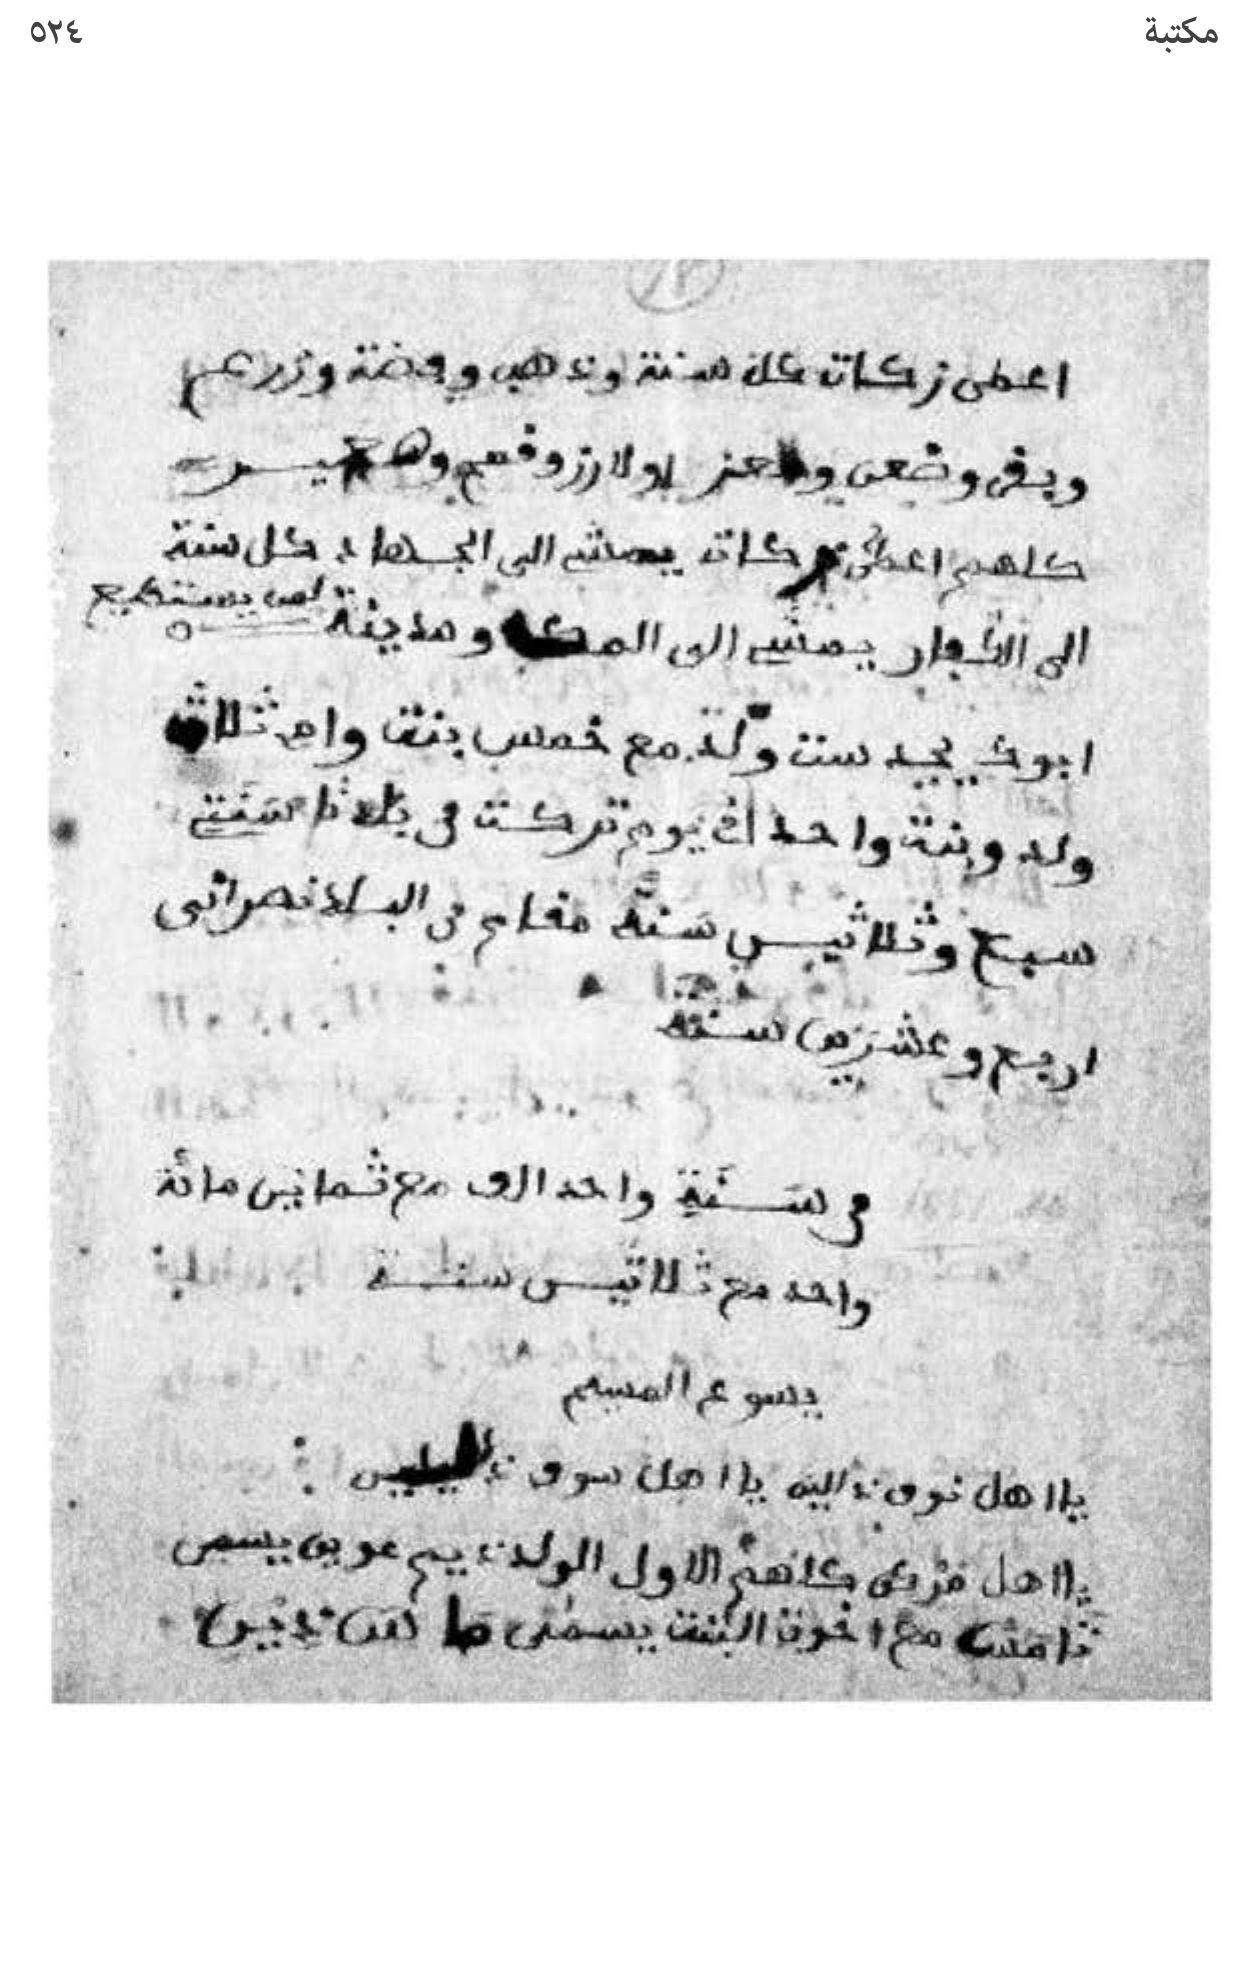 مكتبة
٥٢٤
اعطى زكات كل سنة وذهب وفضة وزرعم
وبقى وضعى ومعز اولارزوقهم وهميــر
كلهم اعطى زكات يمشى الى الجهاد كل سنة
الى الكفار يمشى الى المكه ومدينة لمن يستطيع
ابوك يجد ست ولد مع خمس بنت وام ثلاث
ولد وبنت واحد اى يوم تركت فى بلادنا سنتى
سبع وثلاثيں سنة مقام فى البلاد نصرانى
اربع وعشرين سنة
فى سنة واحد الف مع ثمانين مائة
واحد مع ثلاثيں سنة
يسوع المسيح
يا اهل نوف يا اهل سوف
يا اهل كلهم الاول الولد يسمى
مع اخوة البنت يسمى